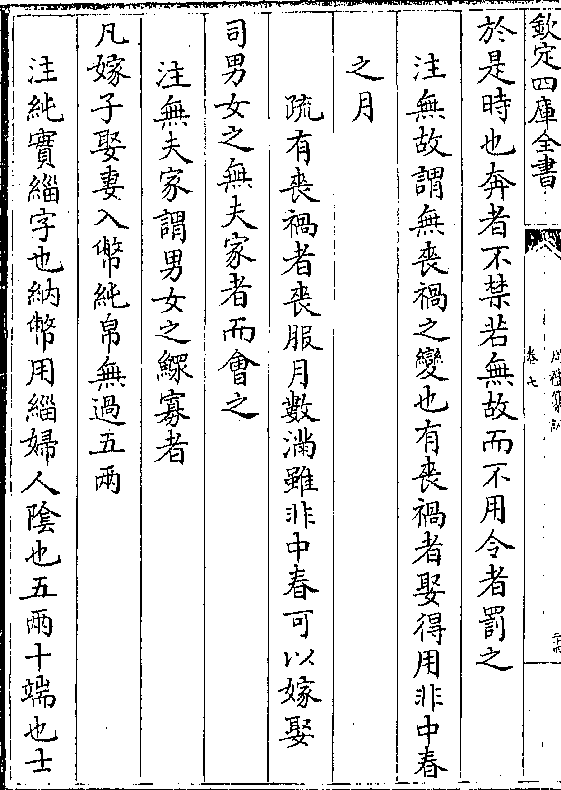 欽定四庫全書
卷七
於是時也奔者不禁若無故而不用令者罰之
注無故謂無喪禍之變也有喪禍者娶得用非中春
之月
疏有喪禍者喪服月數滿雖非中春可以嫁娶
司男女之無夫家者而會之
注無夫家謂男女之鰥寡者
凡嫁子娶妻入幣純帛無過五兩
注純實緇字也納幣用緇婦人陰也五兩十端也士